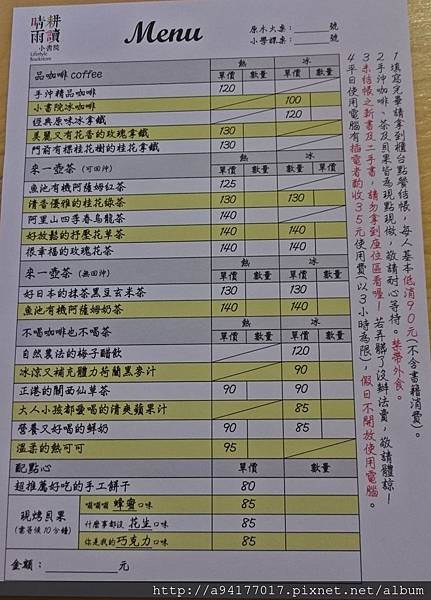 晴耕雨讀
小書院
Lifestyle
Bookstore
Menu
原木大桌：______號
小學課桌：______號
品咖啡 coffee 熱 冰
單價 數量 單價 數量
手沖精品咖啡 120
小書院冰咖啡 100
經典原味冰拿鐵 120
美麗又有花香的玫瑰拿鐵 130
門前有棵桂花樹的桂花拿鐵 130
來一壺茶 (可回沖) 熱 冰
單價 數量 單價 數量
魚池有機阿薩姆紅茶 125
清香優雅的桂花綠茶 130 130
阿里山四季春烏龍茶 140
好放鬆的抒壓花草茶 140 140
很幸福的玫瑰花茶 140 140
來一壺茶 (無回沖) 熱 冰
單價 數量 單價 數量
好日本的抹茶黑豆玄米茶 130 130
魚池有機阿薩姆奶茶 140 140
不喝咖啡也不喝茶 熱 冰
單價 數量 單價 數量
自然農法的梅子醋飲 120
冰涼又補充體力荷蘭黑麥汁 90
正港的關西仙草茶 90 90
大人小孩都愛喝的清爽蘋果汁 85
營養又好喝的鮮奶 90 85
溫柔的熱可可 95
配點心 單價 數量
超推薦好吃的手工餅干 80
現烤貝果
(需等候10分鐘)
嗡嗡嗡 蜂蜜口味 85
什麼事都沒 花生口味 85
你是我的巧克力口味 85
金額：__________元
1 填寫完畢請拿到櫃台點餐結帳，每人基本低消90元(不含書籍消費)。
2 手沖咖啡、茶及貝果皆為現點現做，敬請耐心等待。禁帶外食。
3 未結帳之新書及二手書，請勿拿到座位區看喔！若弄髒了沒辦法賣，敬請體諒！
4 平日使用電腦有插電者酌收35元使用費(以3小時為限)，假日不開放使用電腦。
http://a94177017.pixnet.net/album